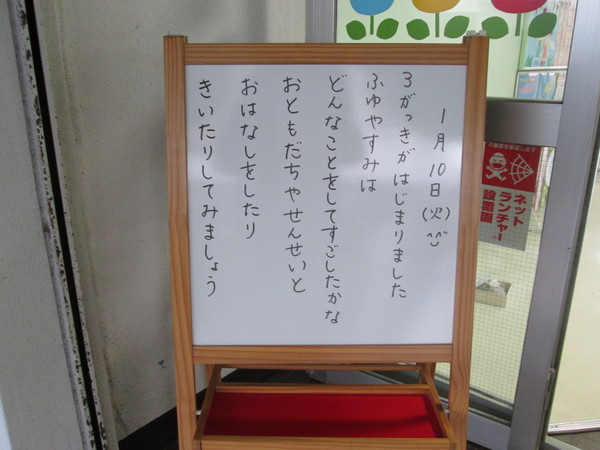 1月10日(火)
3がっきがはじまりました
ふゆやすみは
どんなことをしてすごしたかな
おともだちやせんせいと
おはなしをしたり
きいたりしてみましょう
ネット
ランチャー
設置園